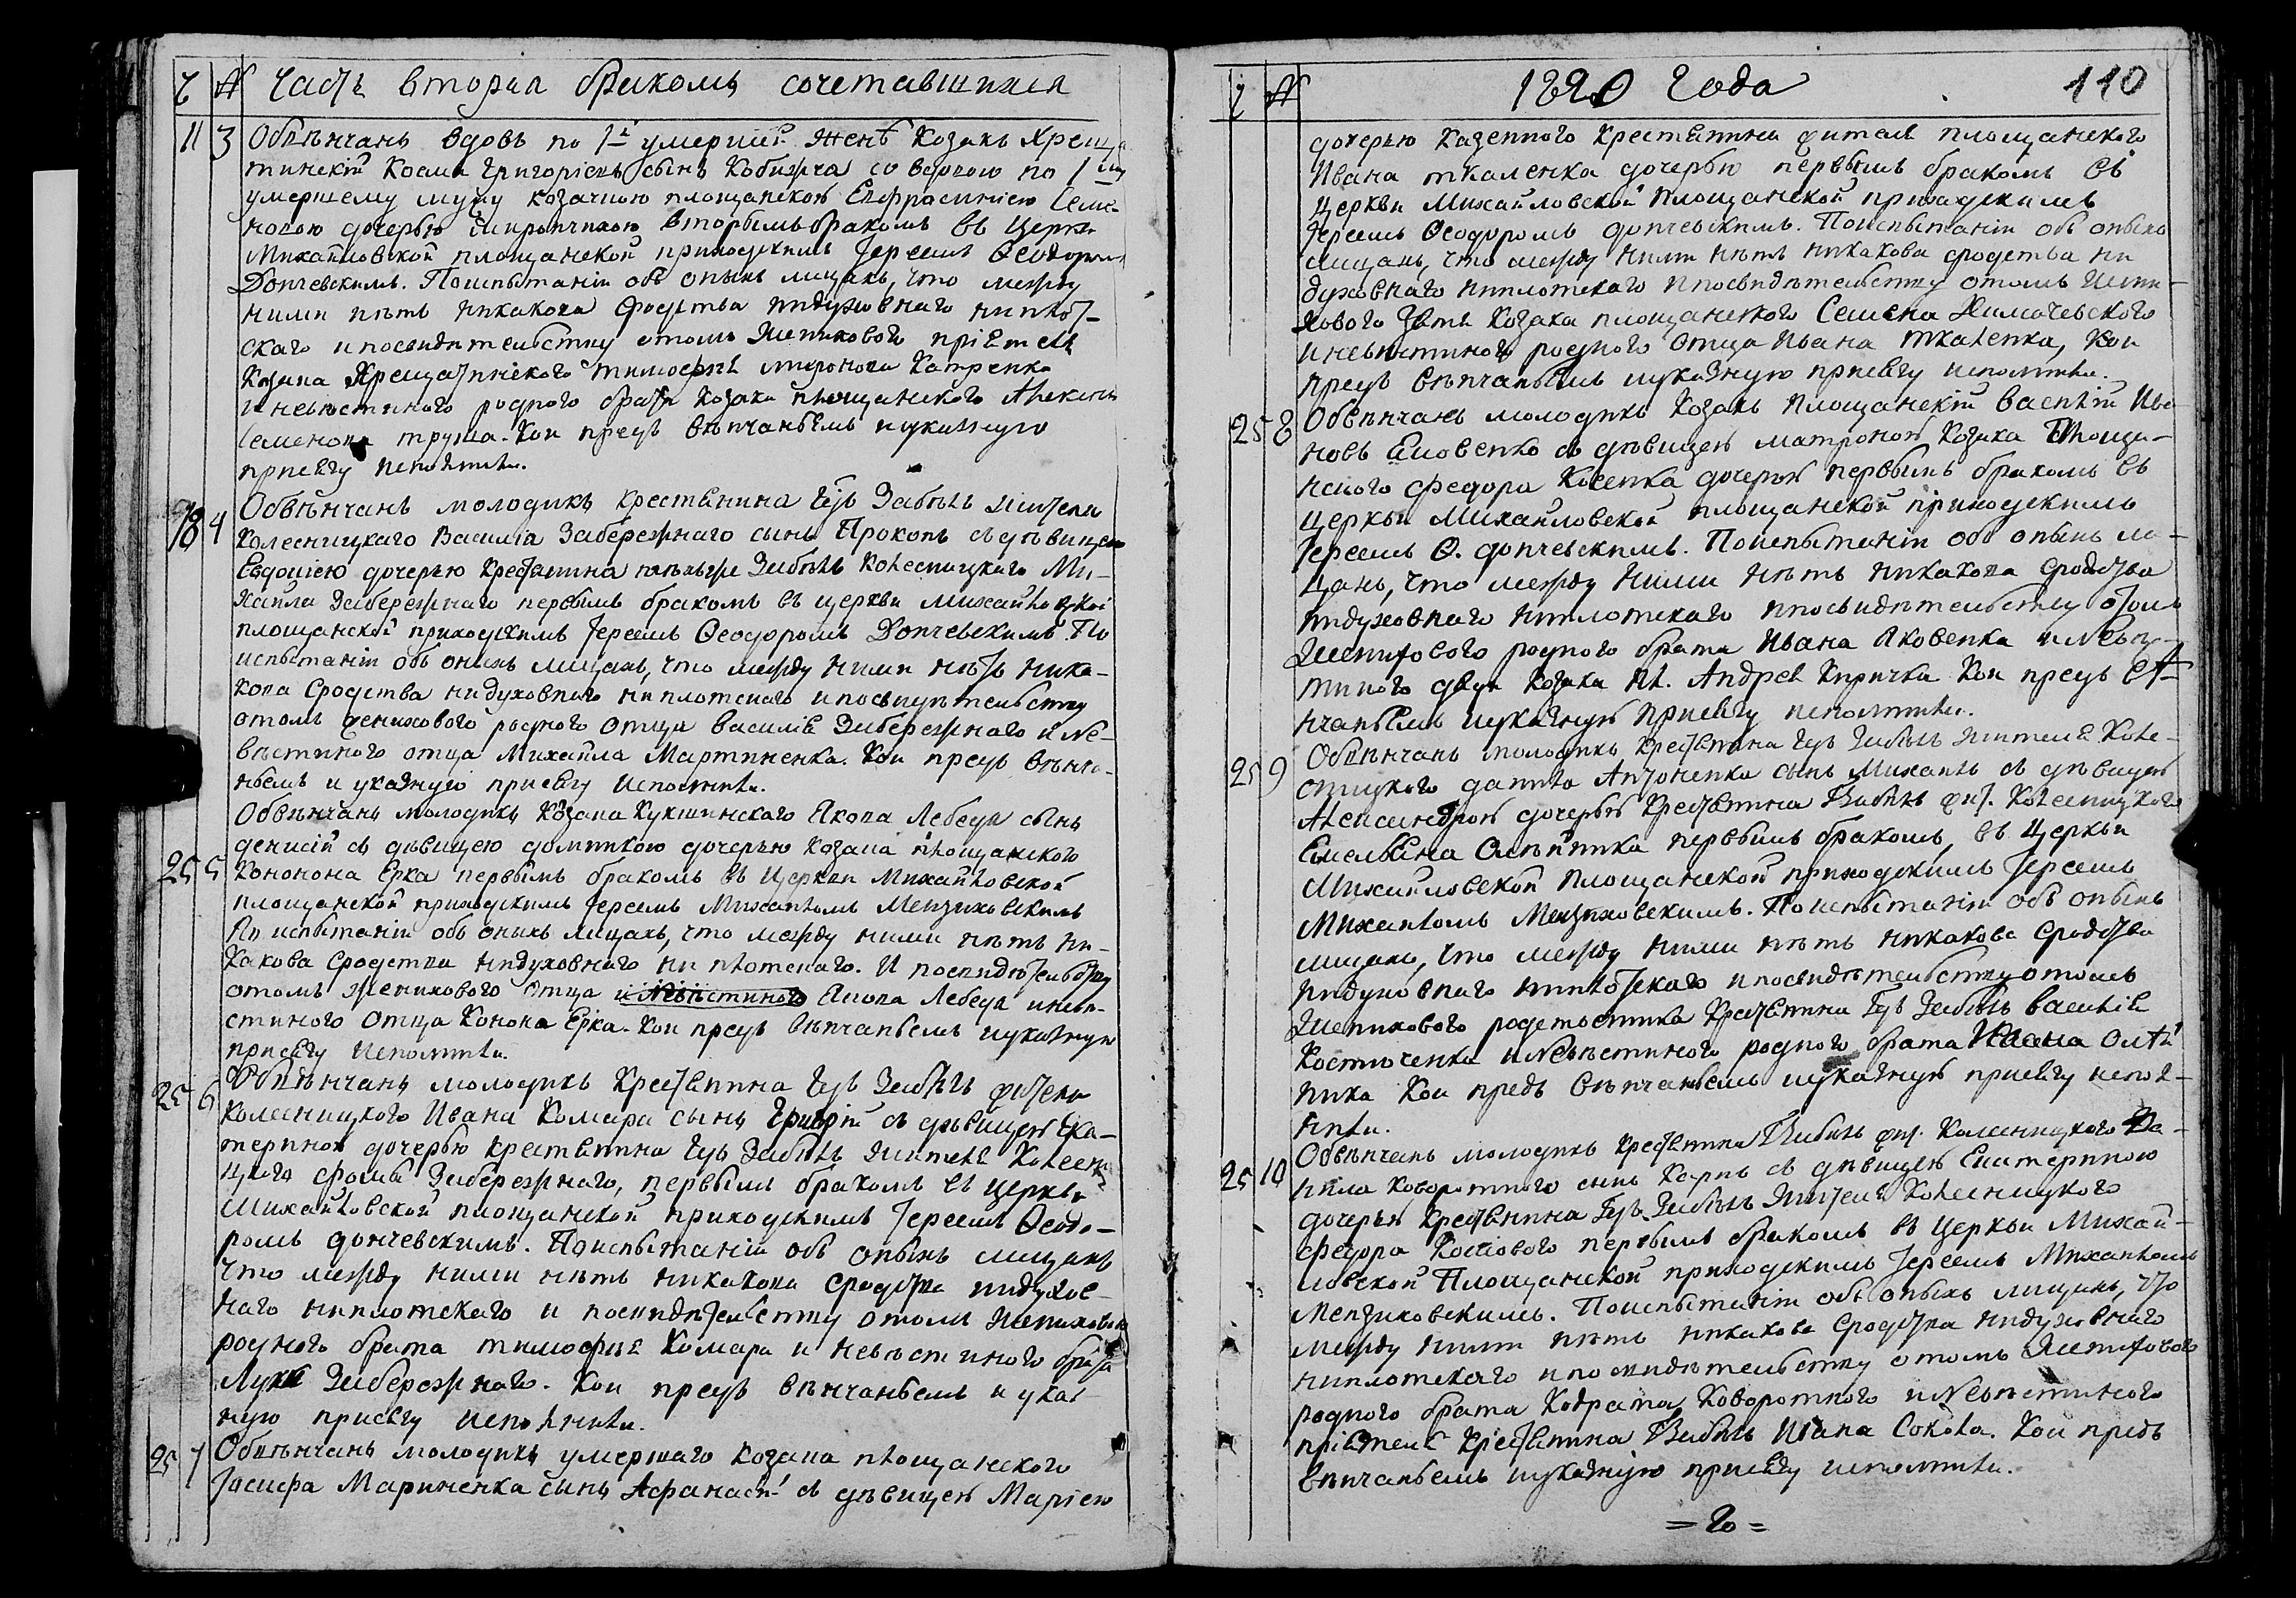 Ч № Часть вторая бракомъ сочетавшихся
11 3 Обвѣнчанъ вдовъ по 1й умершей женѣ козакъ Хреща
тинскій Косма Григоріевъ сынъ Кобижча со вдовою по 1му
умершему мужу козачкою площанскою Евфросиніею Семе
новою дочерью вторымъ бракомъ въ церкви
Михайловской площанской приходскимъ Іереемъ Ѳеодоромъ
Дончевскимъ. По испытаніи объ оныхъ лицахъ, что между
ними нѣтъ никакова сродства ни духовнаго ни плот-
скаго и по свидѣтельству о томъ женихового пріятеля
козака Хрещатинского Тимофея Миронова Катренка
и невѣстиного родного брата козака площанского Алексія
Семенова Труша. Кои предъ вѣнчаніемъ и указную
присягу исполнили.
18 4 Обвѣнчанъ молодикъ крестянина Гдъ Забѣлъ жителя
Колесницкаго Василія Забережнаго сынъ Прокопъ съ дѣвицею
Евдокіею дочерью крестянина Забѣлъ Колесницкаго Ми-
хайла Забережнаго первымъ бракомъ въ церкви Михайловской
площанской приходскимъ Іереемъ Ѳеодоромъ Дончевскимъ. По
испытаніи объ оныхъ лицахъ, что между ними нѣтъ ника-
кова сродства ни духовнаго ни плотскаго и по свидѣтельству
о томъ женихового родного отца Василія Забережнаго и не-
вѣстиного отца Михайла Мартиненка. Кои предъ вѣнча-
ніемъ и указную присягу исполнили.
Обвѣнчанъ молодикъ козака Кукшинскаго Якова Лебедя сынъ
25 5 Денисій съ дѣвицею Домникою дочерью козака площанского
Конона Ерка первымъ бракомъ въ церкви Михайловской
площанской приходскимъ Іереемъ Михаиломъ Мензиховскимъ
По испытаніи объ оныхъ лицахъ, что между ними нѣтъ ни-
какова сродства ни духовнаго ни плотскаго. И по свидѣтельству
о томъ женихового отца и невѣстиного Якова Лебедя и невѣ-
стиного отца Конона Ерка. Кои предъ вѣнчаніемъ и указную
присягу исполнили.
25 6 Обвѣнчанъ молодикъ крестянина Гдъ Забѣлъ жителя
Колесницкого Ивана Комара сынъ Григорій съ дѣвицею Ека-
териною дочерью крестянина Гдъ Забѣлъ жителя Колесни
цкого Фомы Забережнаго, первымъ бракомъ въ церкви
Михайловской площанской приходскимъ Іереемъ Ѳеодо-
ромъ Дончевскимъ. По испытаніи объ оныхъ лицахъ
что между ними нѣтъ никакова сродства ни духов-
наго ни плотскаго и по свидѣтельству о томъ женихового
родного брата Тимофея Комара и невѣстиного брата
Луки Забережнаго. Кои предъ вѣнчаніемъ и указ-
ную присягу исполнили.
25 7 Обвѣнчанъ молодикъ умершаго козака площанского
Іосифа Мариненка сынъ Афанасій съ дѣвицею Маріею
Ч № 1820 Года 110
дочерью казенного крестянина жителя площанского
Ивана Ткаленка дочерью первымъ бракомъ въ
церкви Михайловской площанской приходскимъ
Іереемъ Ѳеодоромъ Дончевскимъ. По испытаніи объ оныхъ
лицахъ, что между ними нѣтъ никакова сродства ни
духовнаго ни плотскаго и по свидѣтельству о томъ жени-
хового зятя козака площанского Семена Химачевского
и невѣстиного родного отца Ивана Ткаленка, кои
предъ вѣнчаніемъ и указную присягу исполнили.
25 8 Обвѣнчанъ молодикъ козакъ площанскій Василій Ива
новъ Яковенко съ дѣвицею Матроною козака площа-
нского Федора дочерью первымъ бракомъ въ
церкви Михайловской площанской приходскимъ
Іереемъ Ѳ. Дончевскимъ. По испытаніи объ оныхъ ли-
цахъ, что между ними нѣтъ никакова сродства
ни духовнаго ни плотскаго и по свидѣтельству о томъ
женихового родного брата Ивана Яковенка и невѣс-
тиного дяди козака пл. Андрея Киричка кои предъ вѣ-
нчаніемъ и указную присягу исполнили.
25 9 Обвѣнчанъ молодикъ крестянина Гдъ Забѣлъ жителя Коле-
сницкого Данила Антоненка сынъ Михаилъ съ дѣвицею
Александрою дочерью крестянина Забѣлъ жит. Колесницкого
Емельяна Олѣйника первымъ бракомъ, въ церкви
Михайловской площанской приходскимъ Іереемъ
Михаиломъ Мензиховскимъ. По испытаніи объ оныхъ
лицахъ, что между ними нѣтъ никакова сродства
ни духовнаго ни плотскаго и по свидѣтельству о томъ
женихового родственника крестянина Гдъ Забѣлъ Василія
Костюченка и невѣстиного родного брата Ивана Олѣй
ника кои предъ вѣнчаніемъ и указную присягу испол-
нили.
25 10 Обвѣнчанъ молодикъ крестянина Забѣлъ жит. Колесницкого Да-
нила Коворотного сынъ Карпъ съ дѣвицею Екатериною
дочерью крестянина Гдъ Забѣлъ жителя Колесницкого
Федора первымъ бракомъ въ церкви Михай-
ловской Площанской приходскимъ Іереемъ Михаиломъ
Мензиховскимъ. По испытаніи объ оныхъ лицахъ, что
между ними нѣтъ никакова сродства ни духовнаго
ни плотскаго и по свидѣтельству о томъ женихового
родного брата Кодрата Коворотного и невѣстиного
пріятеля крестянина Забѣлъ Ивана Сокола. Кои предъ
вѣнчаніемъ и указную присягу исполнили.